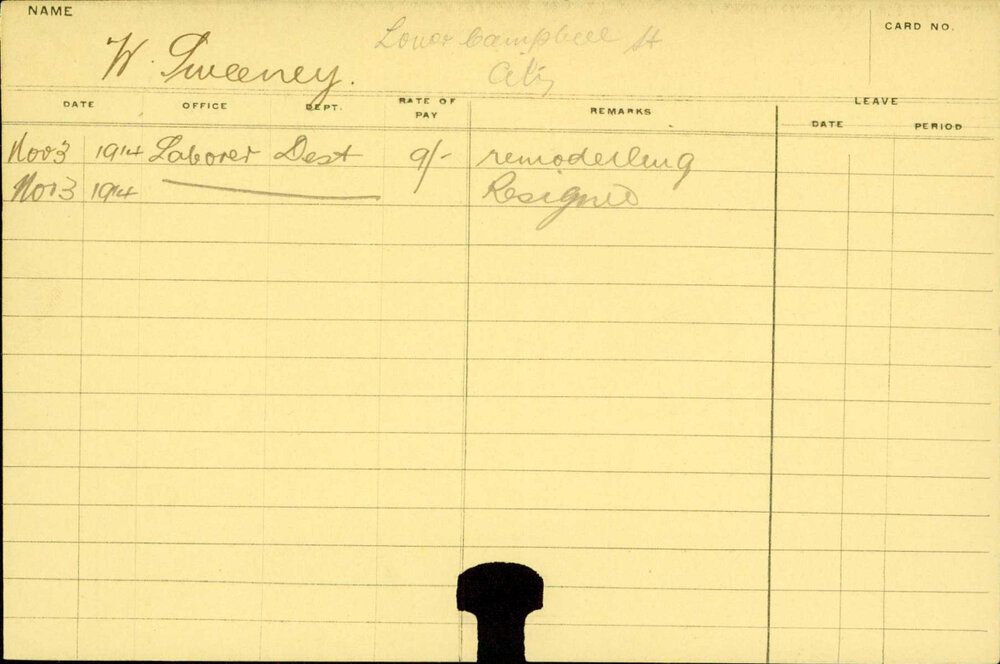 NAME
W. Sweeney.
Lower Campbell St
City
CARD NO.
DATE OFFICE DEPT. RATE OF PAY REMARKS LEAVE DATE PERIOD
Nov 3 1914 Laborer Dest 9/- remodelling
Nov 3 1914 Resigned